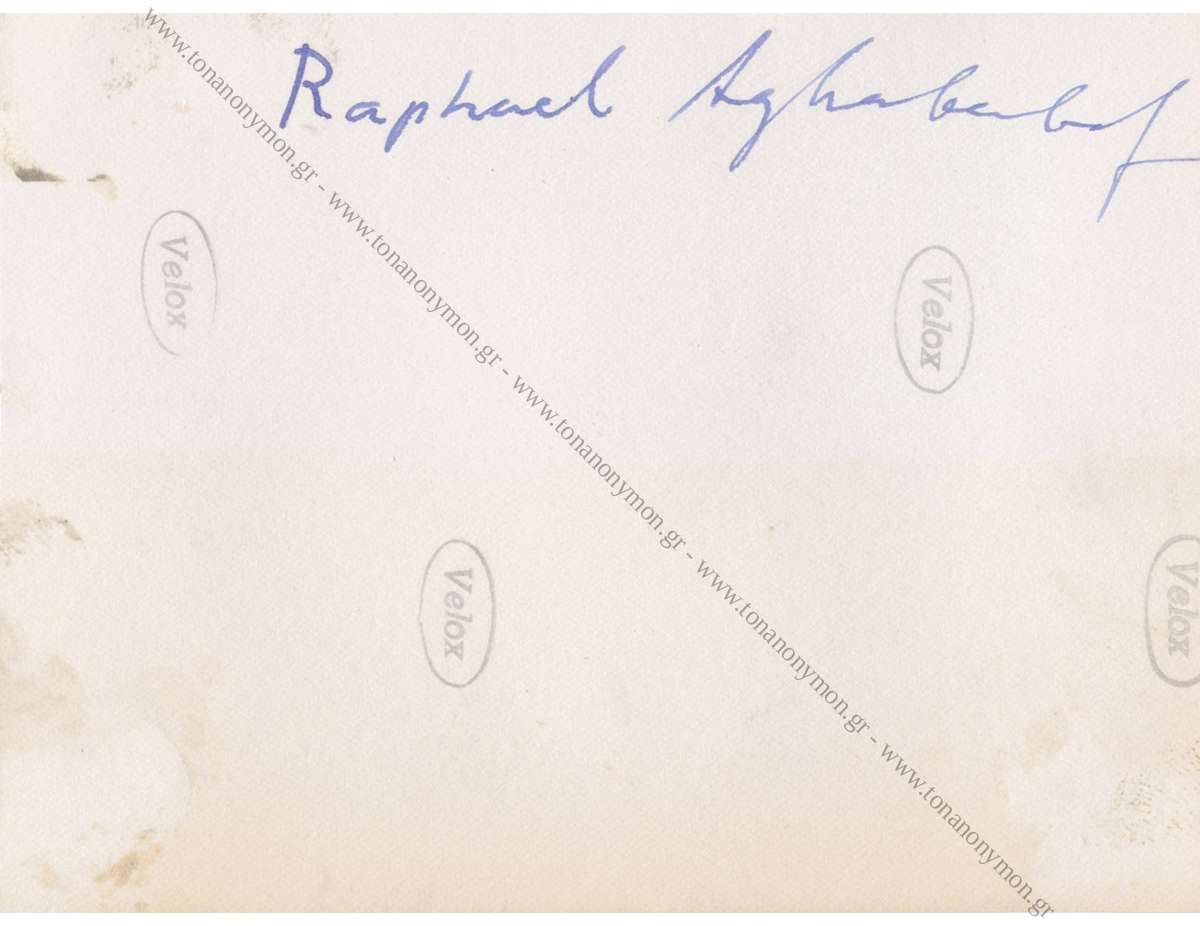 Raphael Aghababof
www.tonanonymon.gr - www.tonanonymon.gr - www.tonanonymon.gr - www.tonanonymon.gr - www.tonanonymon.gr
Velox
Velox
Velox
Velox